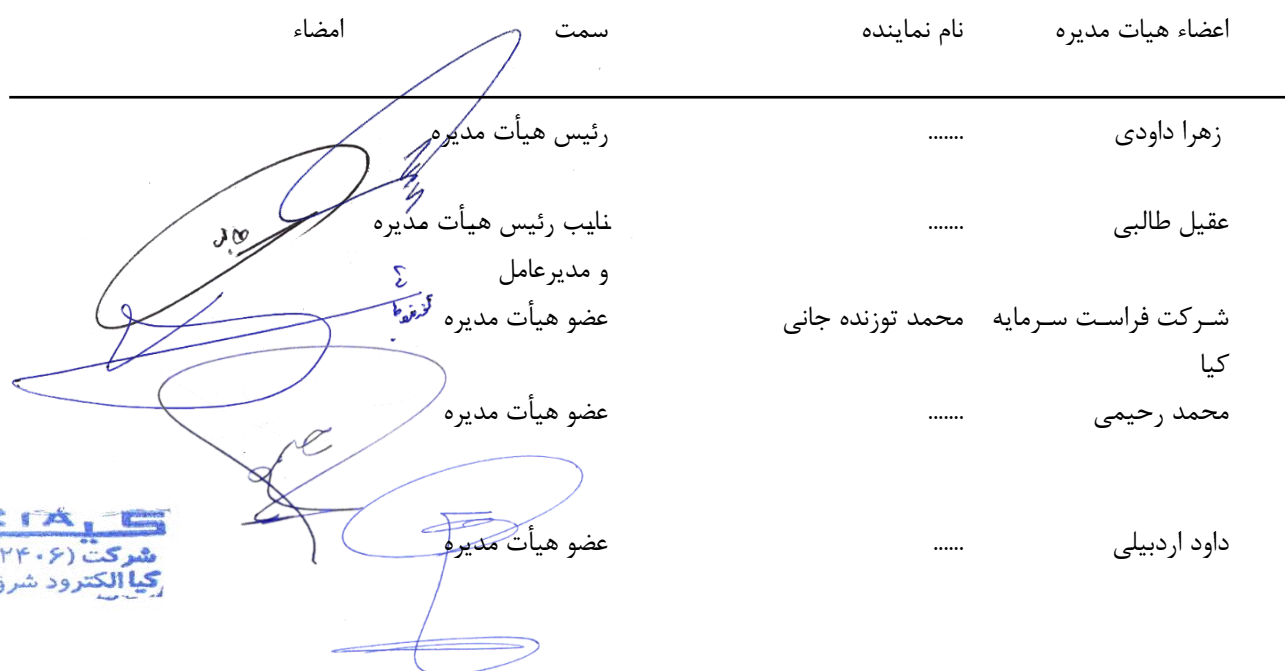 اعضاء هیات مدیره نام نماینده سمت امضاء
زهرا داودی ....... رئیس هیأت مدیره
عقیل طالبی ....... نایب رئیس هیأت مدیره
و مدیرعامل
شرکت فراست سرمایه محمد توزنده جانی عضو هیأت مدیره
کیا
محمد رحیمی ....... عضو هیأت مدیره
داود اردبیلی ...... عضو هیأت مدیره
شرکت (۲۴۰۶
کیا الکترود شرق